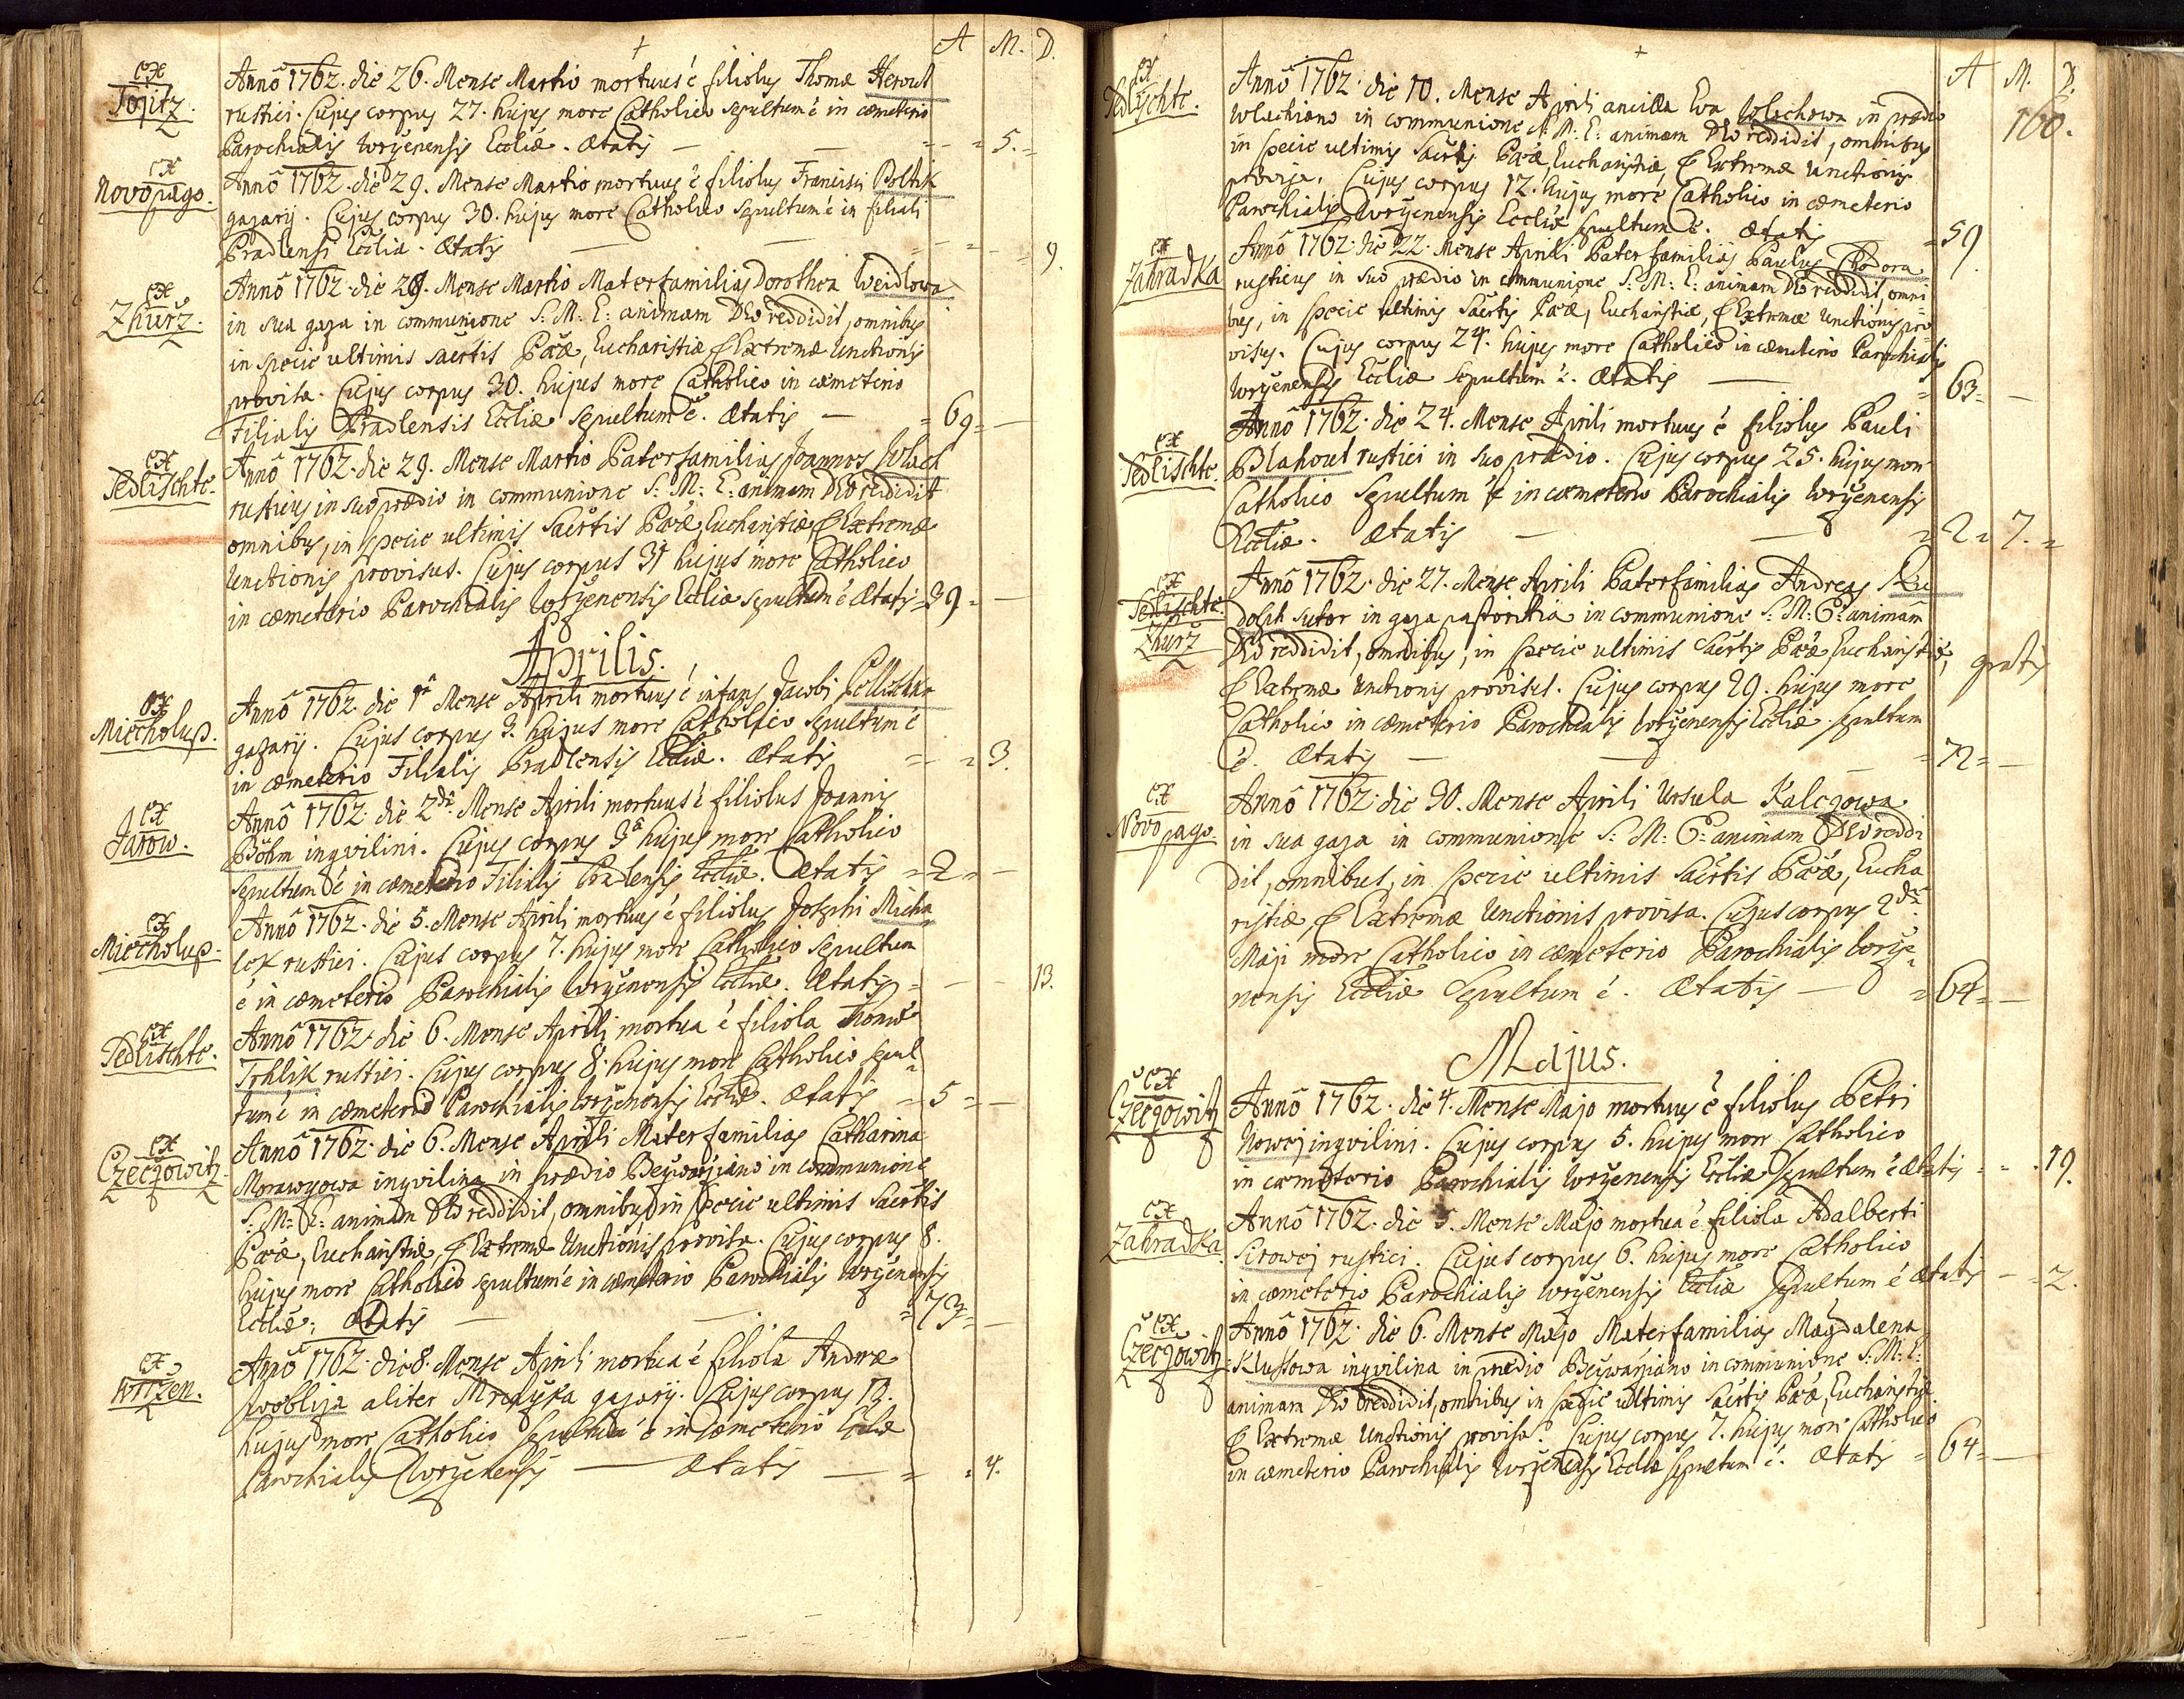 A M. D.
ex Topitz.
Anno 1762. die 26. Mense Martio mortuus é filiolus Thomæ Herout
rustici. Cujus corpus 27. hujus more Catholico sepultum é in cæmeterio
Parochialis Wrženensis Eccliæ. Ætatis — — = = 5. =
ex Novopago.
Anno 1762. die 29. Mense Martio mortuus é filiolus Francisci Poltik
gazarij. Cujus corpus 30. hujus more Catholico sepultum é in filiali
Pradlensi Ecclia. Ætatis — — = = 9.
ex Zhurž.
Anno 1762. die 28. Mense Martio Materfamilias Dorothea Weidlowa
in sua gaza in communione S: M: E: animam DEo reddidit, omnibus
in specie ultimis sacrtis Pœæ, Eucharistiæ & Extremæ Unctionis
provisa. Cujus corpus 30. hujus more Catholico in cæmeterio
Filialis Pradlensis Eccliæ sepultum é. Ætatis — = 69 = —
ex Sedlischte.
Anno 1762. die 29. Mense Martio Paterfamilias Joannes Wlach
rusticus in suo prædio in communione S: M: E: animam DEo reddidit
omnibus, in specie ultimis Sacrtis Pœæ, Eucharistiæ, & Extremæ
Unctionis provisus. Cujus corpus 31 hujus more Catholico
in cæmeterio Parochialis Wrženensis Eccliæ sepultum é Ætatis = 39 = —
Aprilis.
ex Miecholup.
Anno 1762. die 1ª Mense Aprili mortuus é infans Jacobi
gazarij. Cujus corpus 3. hujus more Catholico sepultum é
in cæmeterio Filialis Pradlensis Eccliæ. Ætatis = = 3.
ex Jarow.
Anno 1762. die 2dâ Mense Aprili mortuus é filiolus Joannis
Böhm inqvilini. Cujus corpus 3ª hujus more Catholico
sepultum é in cæmeterio Filialis Pradlensis Eccliæ. Ætatis = 2 = —
ex Miecholup.
Anno 1762. die 5. Mense Aprili mortuus é filiolus Josephi Micha
lek rustici. Cujus corpus 7. hujus more Catholico sepultum
é in cæmeterio Parochialis Wrženensis Eccliæ. Ætatis = — — 13.
ex Sedlischte.
Anno 1762. die 6. Mense Aprili mortua é filiola Thomæ
Trhlik rustici. Cujus corpus 8. hujus more Catholico sepul=
tum é in cæmeterio Parochialis Wrženensis Eccliæ. Ætatis = 5 = —
ex Czeczowitz.
Anno 1762. die 6. Mense Aprili Materfamilias Catharina
inqvilina in prædio in communione
S: M: E: animam DEo reddidit, omnibus in specie ultimis Sacrtis
Pœæ, Eucharistiæ, & Extremæ Unctionis provisa. Cujus corpus 8.
hujus more Catholico sepultum é in cæmeterio Parochialis Wrženensis
Eccliæ; Ætatis — — = 73 = —
ex Wržen.
Anno 1762. die 8. Mense Aprili mortua é filiola Andreæ
aliter gazarij. Cujus corpus 13.
hujus more Catholico sepultum é in cæmeterio Eccliæ
Parochialis Wrženensis — Ætatis — = = 4.
A M. D.
160.
ex Sedlischte.
Anno 1762. die 10. Mense Aprili ancilla Eva Wlachowa in prædio
Wlachiano in communione S: M: E: animam DEo reddidit, omnibus
in specie ultimis Sacrtis Pœæ, Eucharistiæ, & Extremæ Unctionis
provisa. Cujus corpus 12. hujus more Catholico in cæmeterio
Parochialis Wrženensis Eccliæ sepultum é. Ætatis = 59
ex Zahradka
Anno 1762. die 22. Mense Aprili Paterfamilias Paulus Chodora
rusticus in suo prædio in communione S: M: E: animam DEo reddidit, omni=
bus, in specie ultimis Sacrtis Pœæ, Eucharistiæ, & Extremæ Unctionis pro=
visus. Cujus corpus 24. hujus more Catholico in cæmeterio Parochialis
Wrženensis Eccliæ sepultum é. Ætatis — = 63 = —
ex Sedlischte.
Anno 1762. die 24. Mense Aprili mortuus é filiolus Pauli
Blahout rustici in suo prædio. Cujus corpus 25. hujus more
Catholico sepultum é in cæmeterio Parochialis Wrženensis
Eccliæ. Ætatis — — = 2 = 7. =
ex Sedlischte. Zhurž
Anno 1762. die 27. Mense Aprili Paterfamilias Andreas Ru
dolph sutor in gaza pastoritia in communione S: M: E: animam
DEo reddidit, omnibus, in specie ultimis Sacrtis Pœæ Eucharistiæ, gratis
& Extremæ Unctionis provisus. Cujus corpus 29. hujus more
Catholico in cæmeterio Parochialis Wrženensis Eccliæ sepultum
é. Ætatis — — = 72 = —
ex Novopago.
Anno 1762. die 30. Mense Aprili Ursula Kalcgowa
in sua gaza in communione S: M: E: animam DEo reddi
dit, omnibus, in specie ultimis Sacrtis Pœæ, Eucha
ristiæ, & Extremæ Unctionis provisa. Cujus corpus 2dâ
Maji more Catholico in cæmeterio Parochialis Wrže=
nensis Eccliæ Sepultum é. Ætatis — = 64 = —
Majus.
ex Czeczowitz
Anno 1762. die 4. Mense Majo mortuus é filiolus Petri
Nowej inqvilini. Cujus corpus 5. hujus more Catholico
in cæmeterio Parochialis Wrženensis Eccliæ sepultum é Ætatis = = 19.
ex Zahradka.
Anno 1762. die 5. Mense Majo mortua é filiola Adalberti
Sirowej rustici. Cujus corpus 6. hujus more Catholico
in cæmeterio Parochialis Wrženensis Eccliæ sepultum é Ætatis — = 2.
ex Czeczowitz.
Anno 1762. die 6. Mense Majo Materfamilias Magdalena
Klussowa inqvilina in prædio in communione S: M: E:
animam DEo reddidit, omnibus in specie ultimis Sacrtis Pœæ, Eucharistiæ
& Extremæ Unctionis provisa. Cujus corpus 7. hujus more Catholico
in cæmeterio Parochialis Wrženensis Eccliæ sepultum é. Ætatis = 64 = —